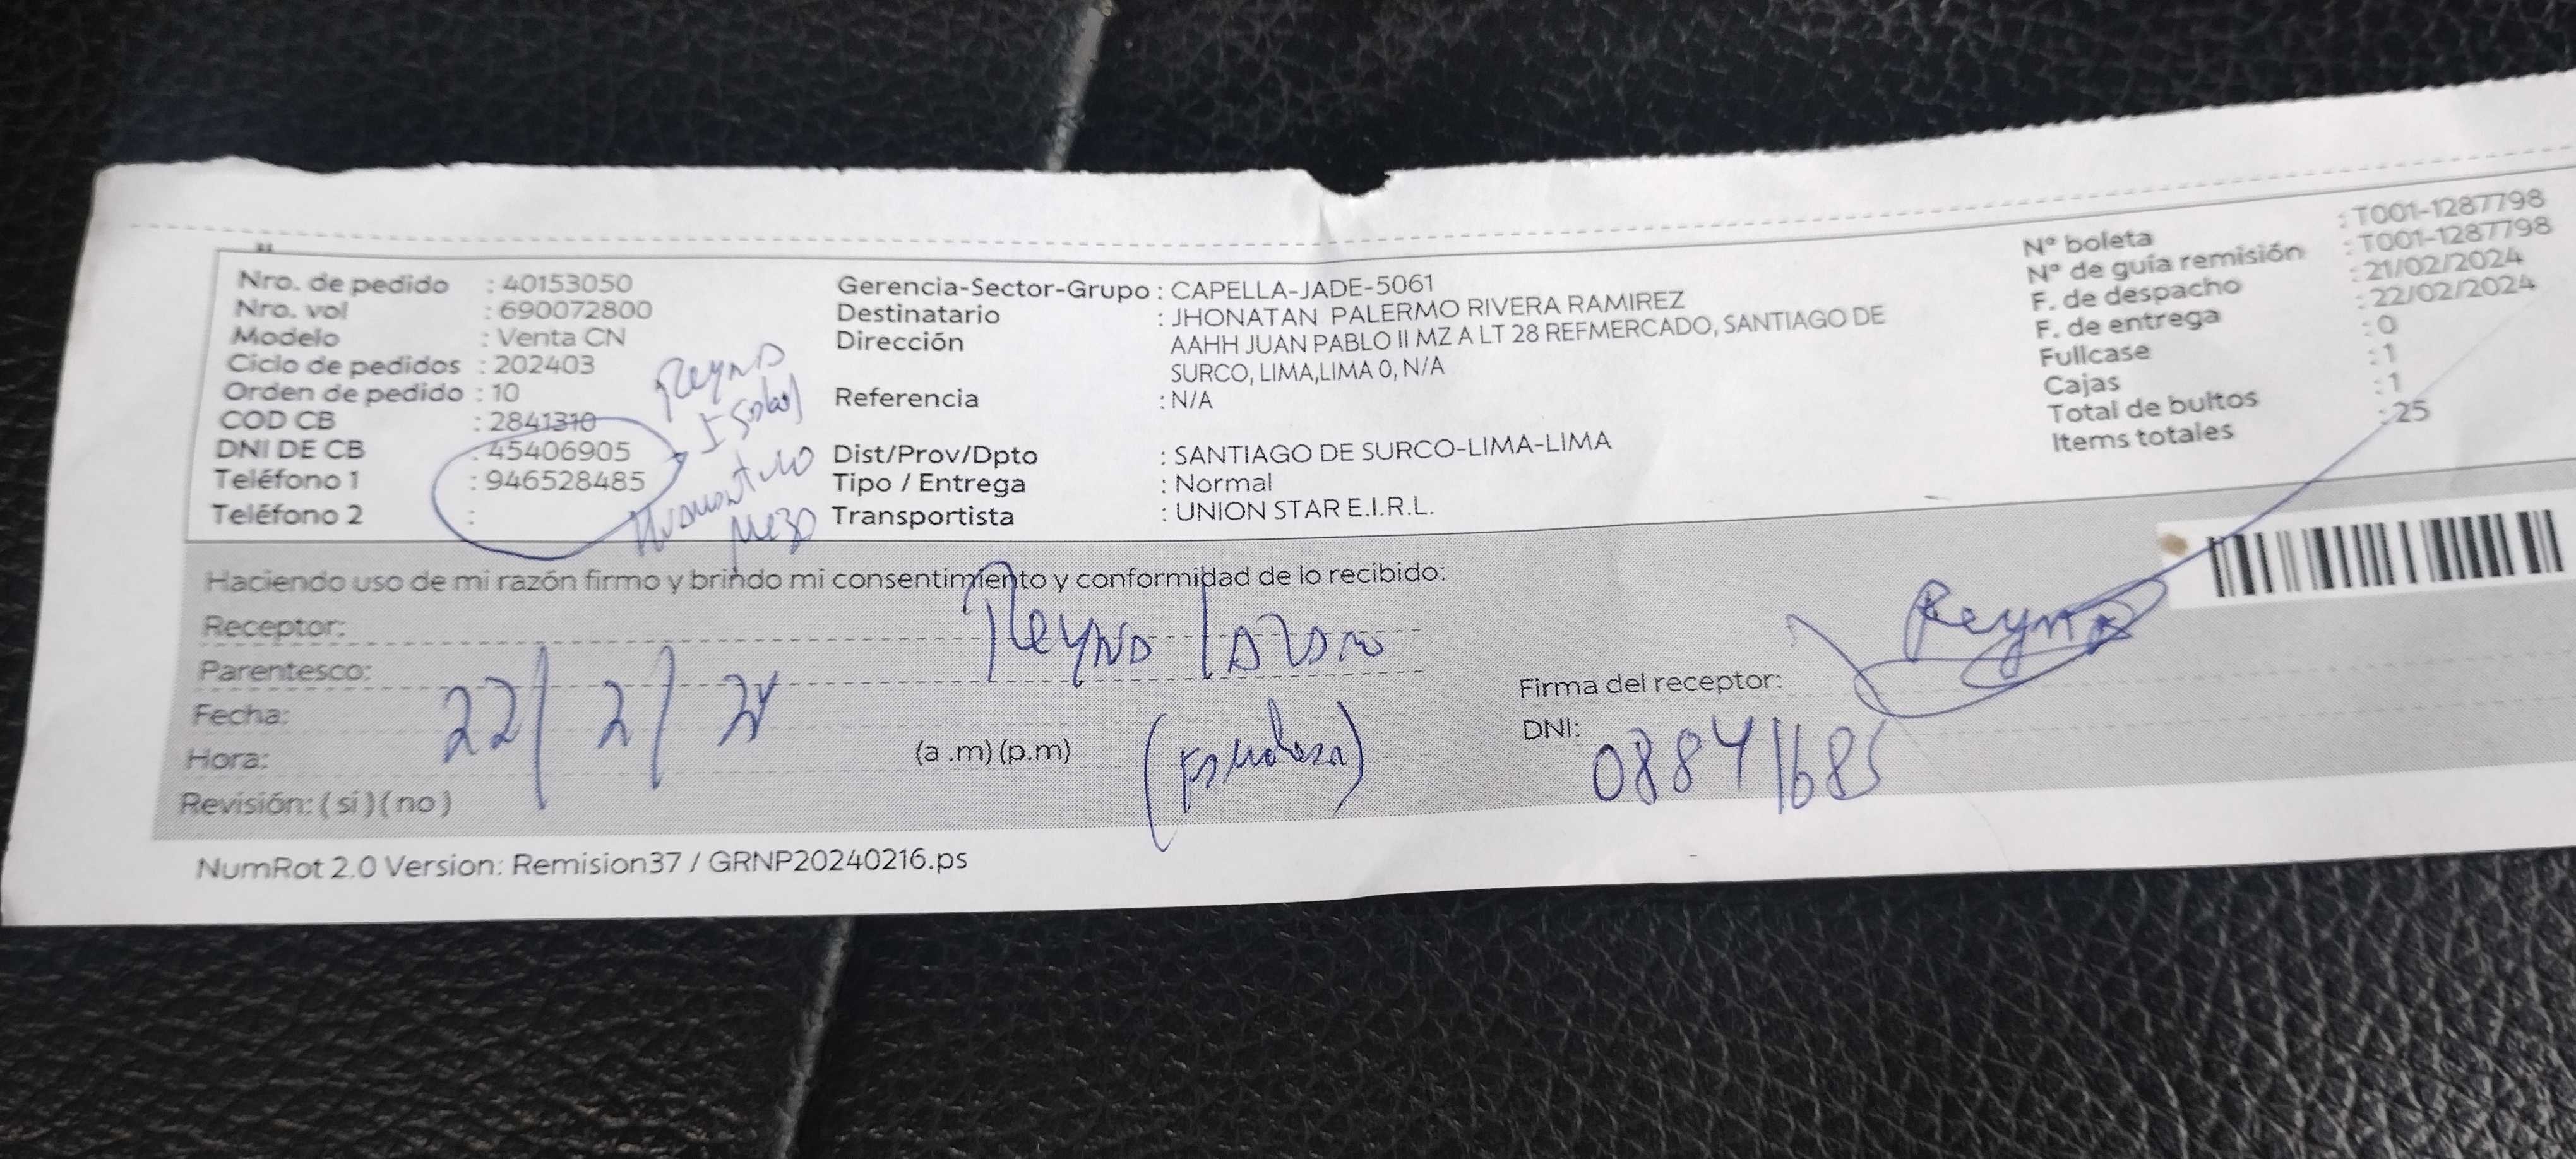 Nro. de pedido : 40153050
Nro. vol : 690072800
Modelo : Venta CN
Ciclo de pedidos : 202403
Orden de pedido : 10
COD CB : 2841310
DNI DE CB : 45406905
Teléfono 1 : 946528485
Teléfono 2 :
Reyna
Isabel
Gerencia-Sector-Grupo : CAPELLA-JADE-5061
Destinatario : JHONATAN PALERMO RIVERA RAMIREZ
Dirección : AAHH JUAN PABLO II MZ A LT 28 REFMERCADO, SANTIAGO DE
SURCO, LIMA,LIMA 0, N/A
Referencia : N/A
Dist/Prov/Dpto : SANTIAGO DE SURCO-LIMA-LIMA
Tipo / Entrega : Normal
Transportista : UNION STAR E.I.R.L.
N° boleta : T001-1287798
N° de guía remisión : T001-1287798
F. de despacho : 21/02/2024
F. de entrega : 22/02/2024
Fullcase : 0
Cajas : 1
Total de bultos : 1
Items totales : 25
Haciendo uso de mi razón firmo y brindo mi consentimiento y conformidad de lo recibido:
Receptor: Reyna
Parentesco:
Fecha: 22/2/24
Hora: (a .m) (p.m)
Revisión: ( si ) ( no )
Firma del receptor: Reyna
DNI: 08841685
NumRot 2.0 Version: Remision37 / GRNP20240216.ps